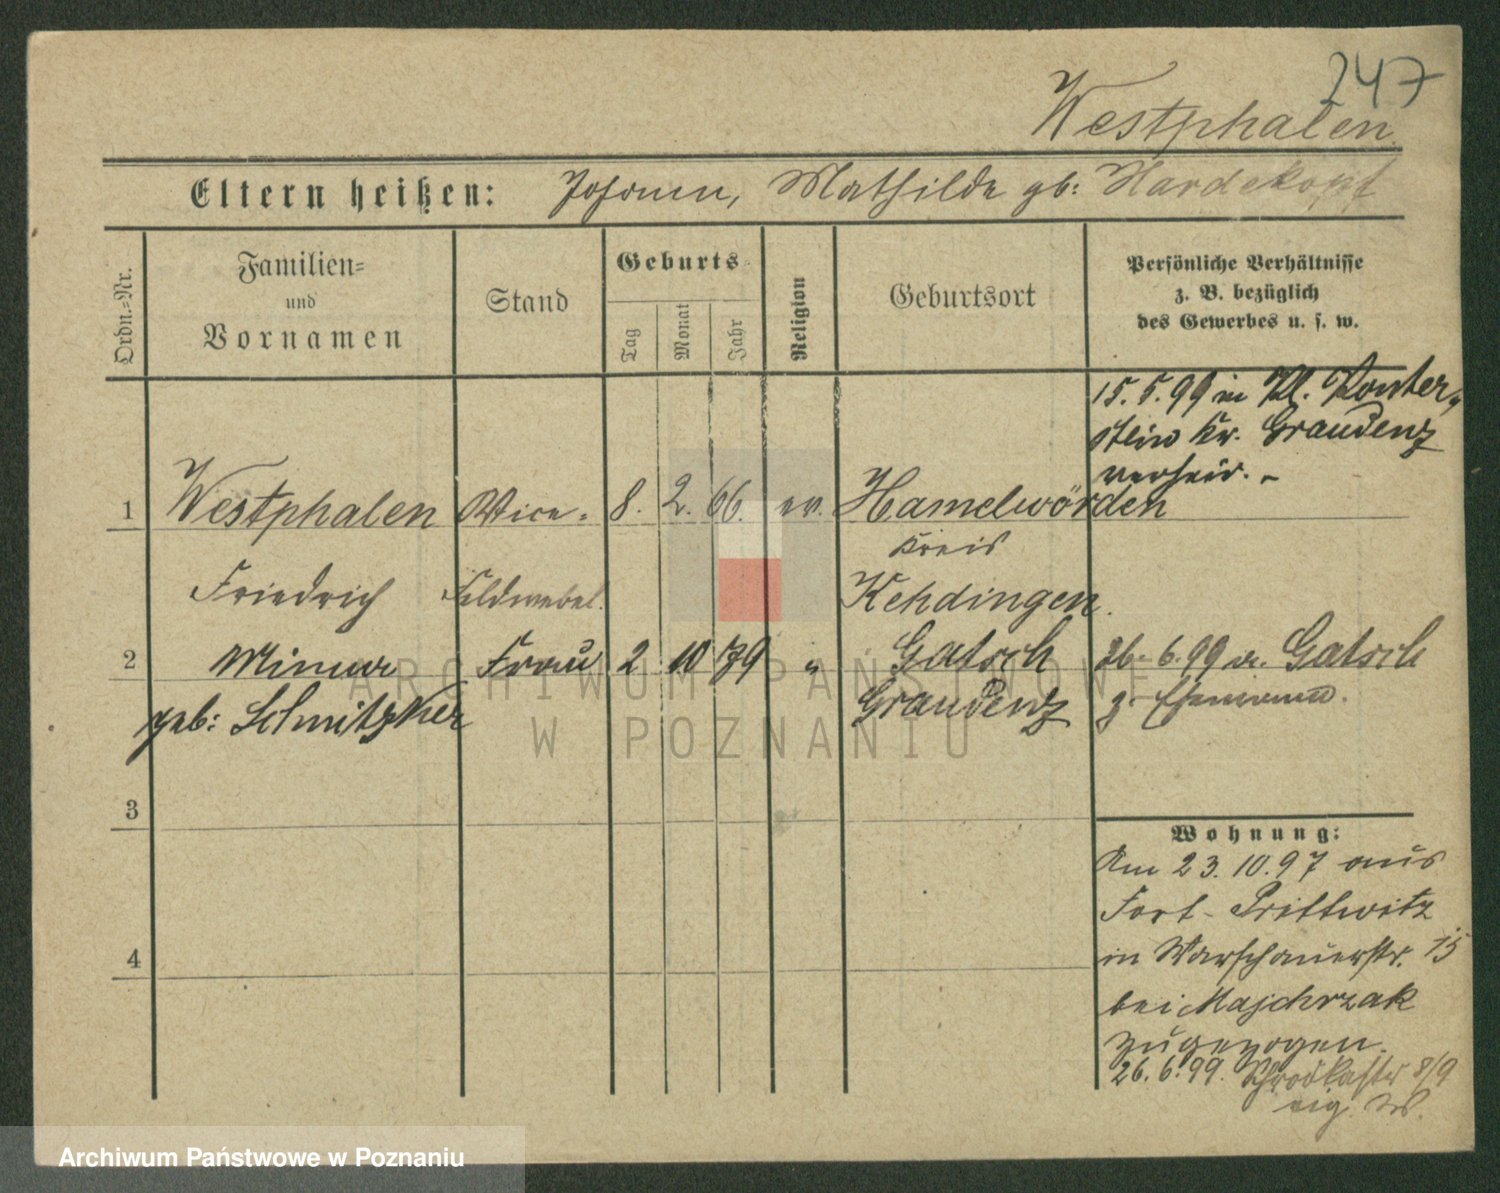 247
Westphalen
Eltern heißen: Johann, Mathilde gb: Hardekopf
Ordn.-Nr.
Familien-
und
Vornamen
Stand
Geburts-
Tag
Monat
Jahr
Religion
Geburtsort
Persönliche Verhältnisse
z. B. bezüglich
des Gewerbes u. s. w.
15. 5. 99 in Kl. Konter-
stein Kr. Graudenz
verheir. -
1 Westphalen Vice- 8. 2. 66. ev. Hamelwörden
Kreis
Friedrich Feldwebel. Kehdingen.
2 Minna Frau 2 10 79 " Gatsch 26. 6. 99 v. Gatsch
geb: Schmitzker Graudenz z. Ehemann.
3
4
Wohnung:
Am 23. 10. 97 aus
Fort- Prittwitz
in Warschauerstr. 15
bei Majchrzak
zugezogen.
26. 6. 99. 8/9
eig. W.
ARCHIWUM PAŃSTWOWE
W POZNANIU
Archiwum Państwowe w Poznaniu